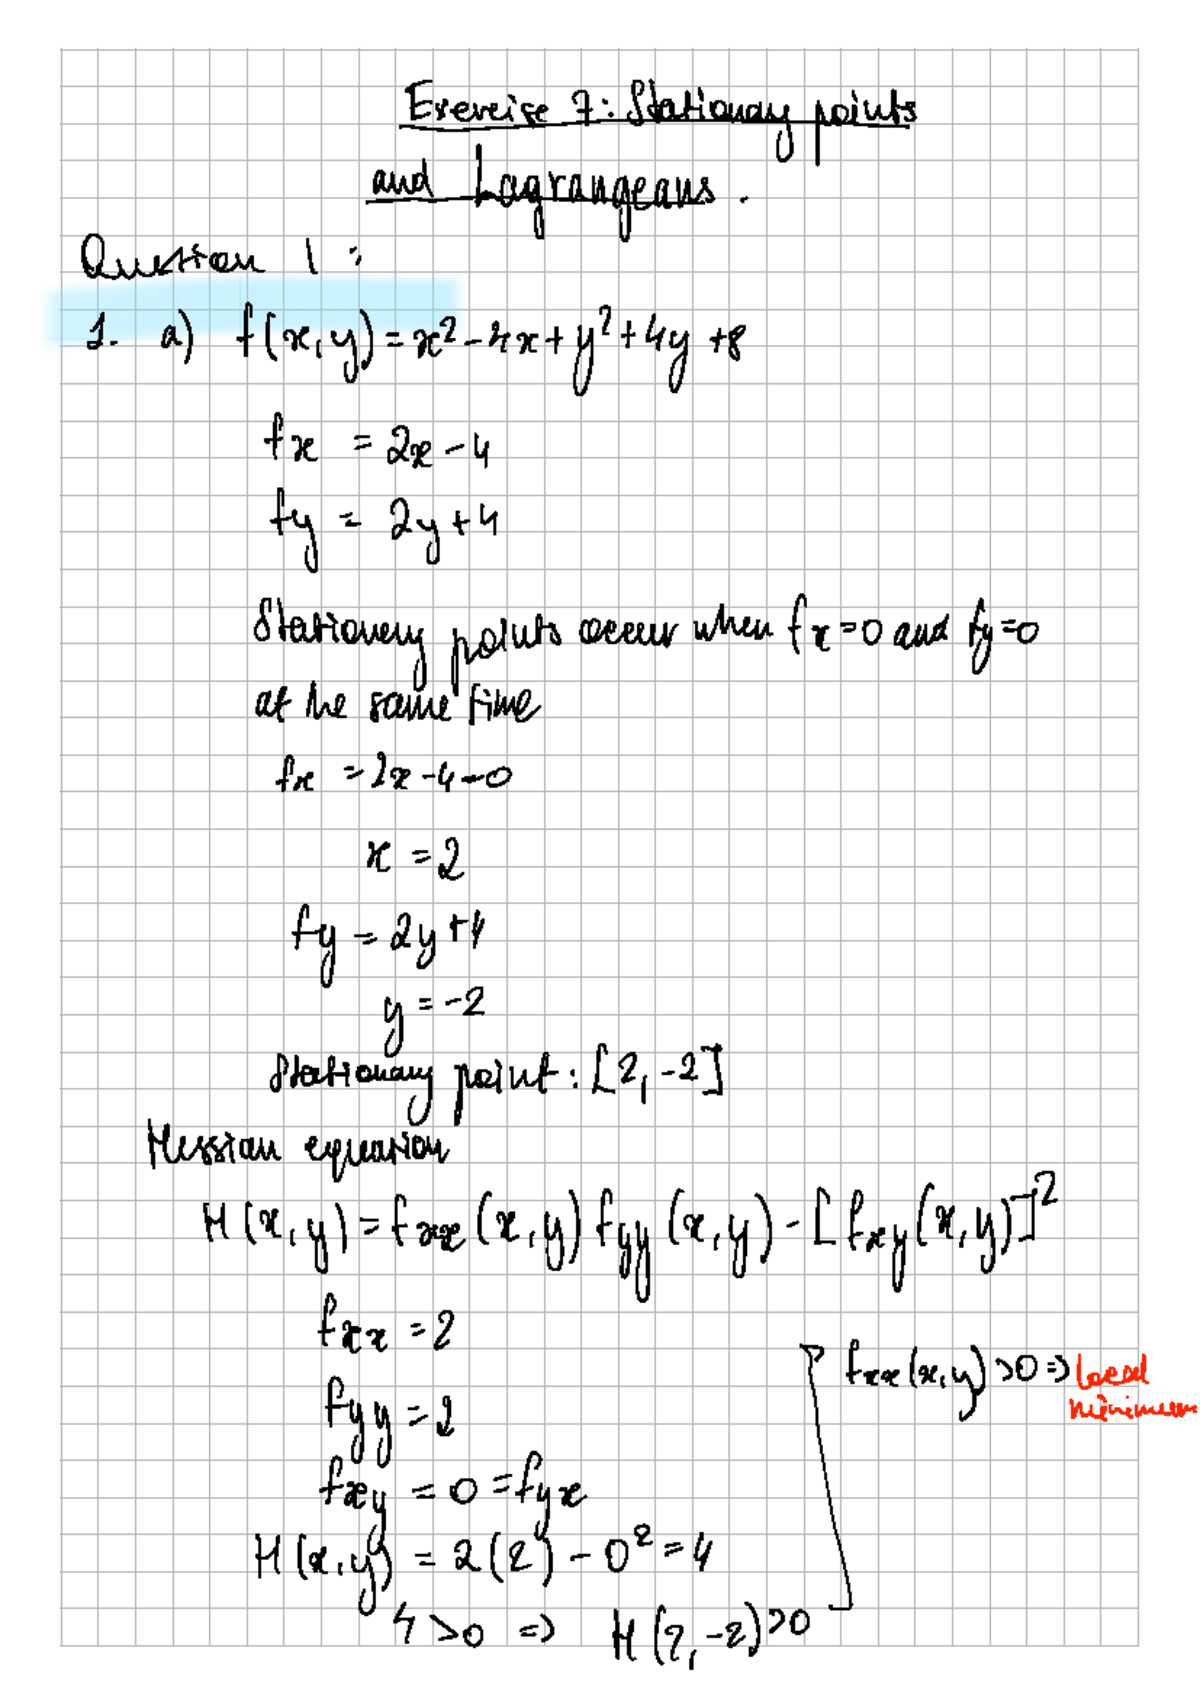 Exercise 7: Stationary points
and Lagrangeans.
Question 1:
1. a) f(x,y) = x² - 4x + y² + 4y + 8
fx = 2x - 4
fy = 2y + 4
Stationary points occur when fx = 0 and fy = 0
at the same time
fx = 2x - 4 = 0
x = 2
fy = 2y + 4
y = -2
Stationary point: [2, -2]
Hessian equation
H(x,y) = fxx(x,y) fyy(x,y) - [fxy(x,y)]²
fxx = 2
fyy = 2
fxy = 0 = fyx
H(x,y) = 2(2) - 0² = 4
4 > 0 => H(2,-2) > 0
fxx(x,y) > 0 => local
minimum